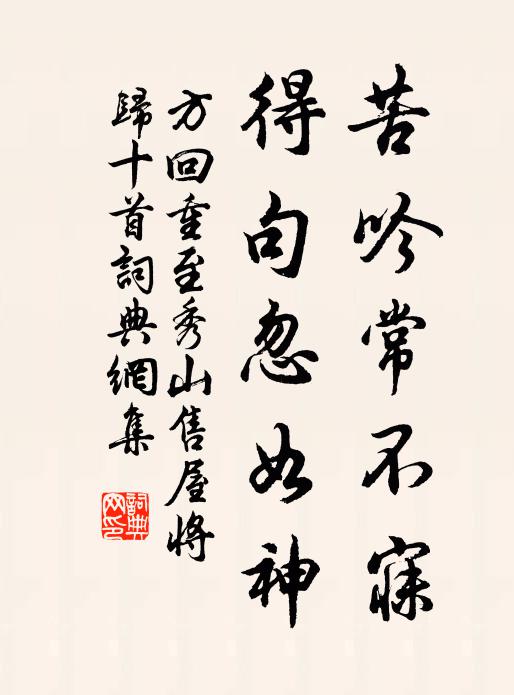 苦吟常不寐
得句忽如神
方回重至秀山售屋將
歸十首詞典網集
詞典
网印